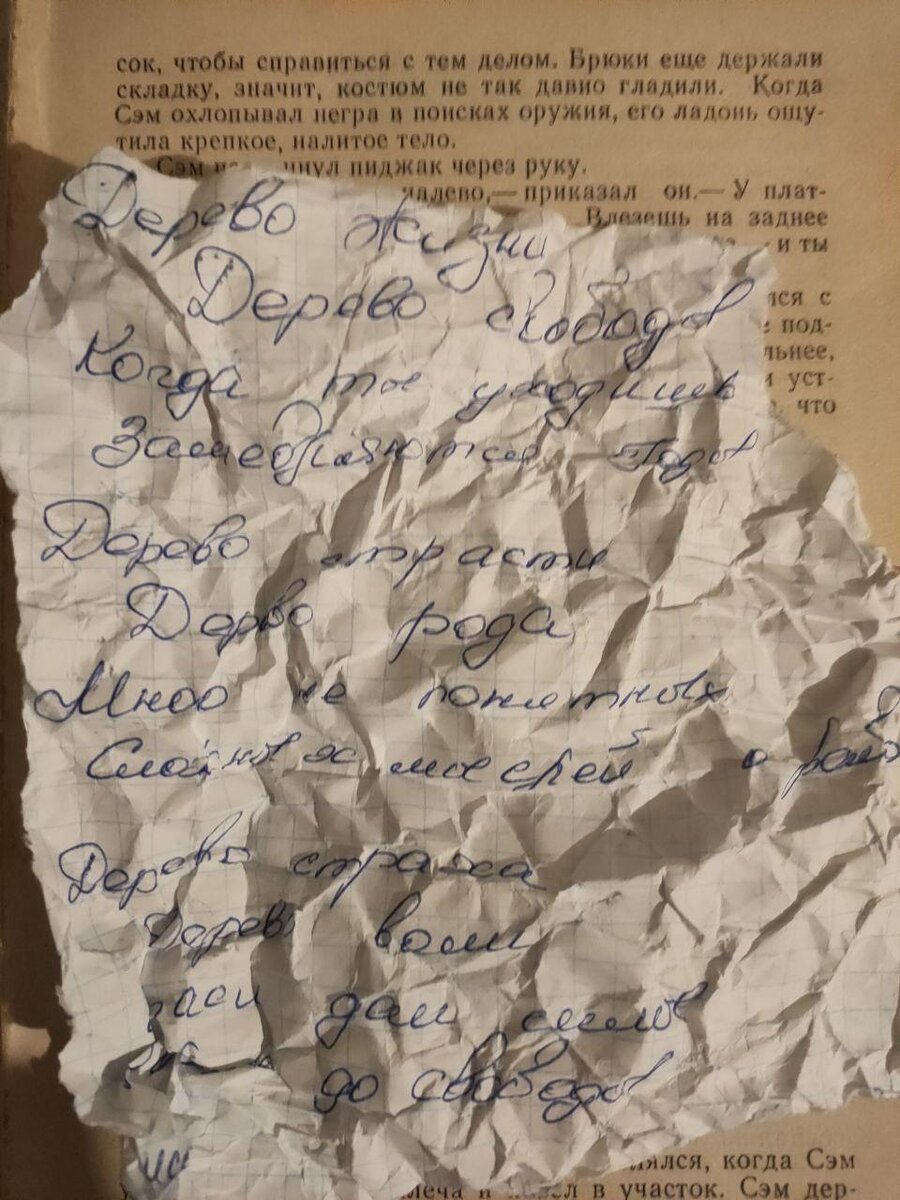 сок, чтобы справиться с тем делом. Брюки еще держали
складку, значит, костюм не так давно гладили. Когда
Сэм охлопывал негра в поисках оружия, его ладонь ощу-
тила крепкое, налитое тело.
Сэм пиджак через руку.
приказал он.— У плат-
Влезешь на заднее
и ты
Дерево жизни
Дерево свободы
Когда ты уходишь
Замедляются годы
Дерево страсти
Дерво рода
Мноо не понятных
мыслей о
Дерево страха
воли
дай силы
до свободы
когда Сэм
в участок. Сэм дер-